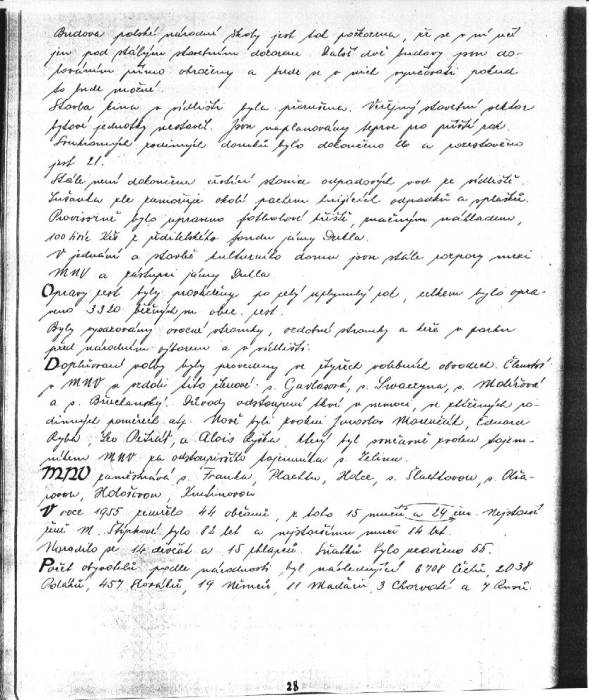 Budova polské národní školy jest tak poškozena, že se v ní učí
jen pod stálým stavebním dozorem. Další dvě budovy jsou do-
lováním přímo ohroženy a bude se v nich vyučovati pokud
to bude možné.
Stavba kina v sídlišti byla přerušena. Veřejný stavební sektor
bytové jednotky nestavěl. Jsou naplánovány teprve pro příští rok.
Soukromých rodinných domků bylo dokončeno 26 a rozestavěno
jest 21.
Stále není dokončena čistící stanice odpadových vod ze sídliště.
Sušanka zle zamořuje okolí pachem hnijících odpadků a splašků.
Provisorně bylo upraveno fotbalové hřiště, značným nákladem,
100 tisíc Kčs z ředitelského fondu jámy Dukla.
V jednání o stavbě kulturního domu jsou stále rozpory mezi
MNV a zástupci jámy Dukla.
Opravy cest byly prováděny po celý uplynulý rok, celkem bylo opra-
veno 3320 běžných m. obec. cest.
Byly vysazovány ovocné stromky, ozdobné stromky a keře v parku
před národním výborem a v sídlišti.
Doplňovací volby byly provedeny ve čtyřech volebních obvodech. Členství
v MNV se vzdali tito členové: s. Gavlasová, s. Swaczyna, s. Matějová
a s. Břuchanský. Důvody odstoupení tkví v nemoci, ve ztížených ro-
dinných poměrech atp. Nově byli zvoleni Jaroslav Eduard
Ryba, Leo a Alois Ryška, který byl současně zvolen tajem-
níkem MNV za odstoupivšího tajemníka s. Zelinu.
MNV zaměstnává s. Franka, Plachtu, Holce, s. Šlachtovou, s.

V roce 1955 zemřelo 44 občanů, z toho 15 mužů a 29 žen. Nejstarší
ženě M. Štěpkové bylo 82 let a nejstaršímu muži 84 let.
Narodilo se 14 děvčat a 15 chlapců. Sňatků bylo uzavřeno 55.
Počet obyvatelů podle národnosti byl následující 6708 Čechů, 2038
Poláků, 457 Slováků, 19 Němců, 11 Maďarů, 3 Chorvaté a 7 Rusů.
28